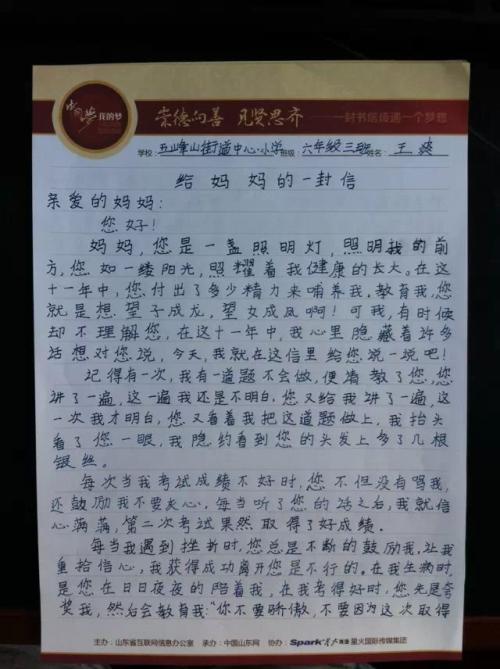 中国梦 我的梦
崇德向善 见贤思齐 一封书信传递一个梦想
学校:五峰山街道中心小学班级:六年级三班姓名:王燚
给妈妈的一封信
亲爱的妈妈:
您好!
妈妈,您是一盏照明灯,照明我的前
方,您如一缕阳光,照耀着我健康的长大。在这
十一年中,您付出了多少精力来哺养我,教育我,您
就是想望子成龙,望女成凤啊!可我,有时候
却不理解您,在这十一年中,我心里隐藏着许多
话想对您说,今天,我就在这信里给您说一说吧!
记得有一次,我有一道题不会做,便请教了您,您
讲了一遍,这一遍我还是不明白,您又给我讲了一遍,这
一次我才明白,您又看着我把这道题做上,我抬头
看了您一眼,我隐约看到您的头发上多了几根
银丝。
每次当我考试成绩不好时,您不但没有吗我,
还鼓励我不要灰心,每当听了您的话之后,我就信
心满满,第二次考试果然取得了好成绩。
每当我遇到挫折时,您总是不断的鼓励我,让我
重拾信心,我获得成功离开您是不行的,在我生病时,
是您在日日夜夜的陪着我,在我考得好时,您先是会
奖我,然后会教育我:“你不要骄傲,不要因为这次取得
主办:山东省互联网信息办公室 承办:中国山东网 协办:Spark 星火国际传媒集团